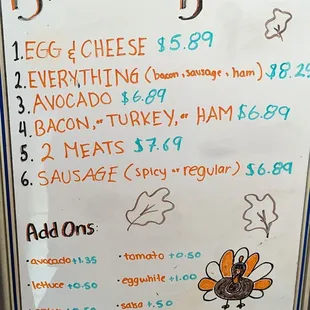 1. EGG & CHEESE $5.89
2. EVERYTHING (bacon, sausage, ham) $8.29
3. AVOCADO $6.89
4. BACON, or TURKEY, or HAM $6.89
5. 2 MEATS $7.69
6. SAUSAGE (spicy or regular) $6.89
Add Ons:
• avocado +1.35
• tomato +0.50
• lettuce +0.50
• eggwhite +1.00
• salsa +.50